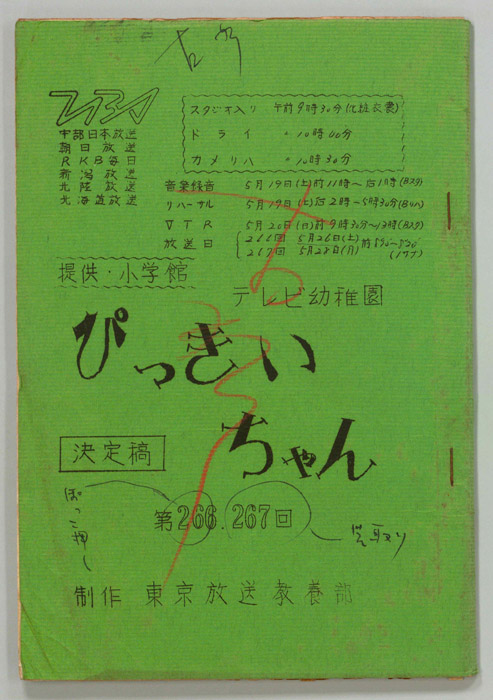 TBS
中部日本放送
朝日放送
RKB毎日
新潟放送
北陸放送
北海道放送
スタジオ入り 午前9時30分(化粧衣裳)
ドライ 〃 10時00分
カメリハ 〃 10時30分
音楽録音 5月19日(土)前11時〜后1時(Bスタ)
リハーサル 5月19日(土)后2時〜5時30分(BUH)
VTR 5月20日(日)前9時30分〜12時(Bスタ)
放送日 266回 5月26日(土)
267回 5月28日(月)
提供・小学館
テレビ幼稚園
ぴっきい
ちゃん
決定稿
第266.267回
制作 東京放送教養部